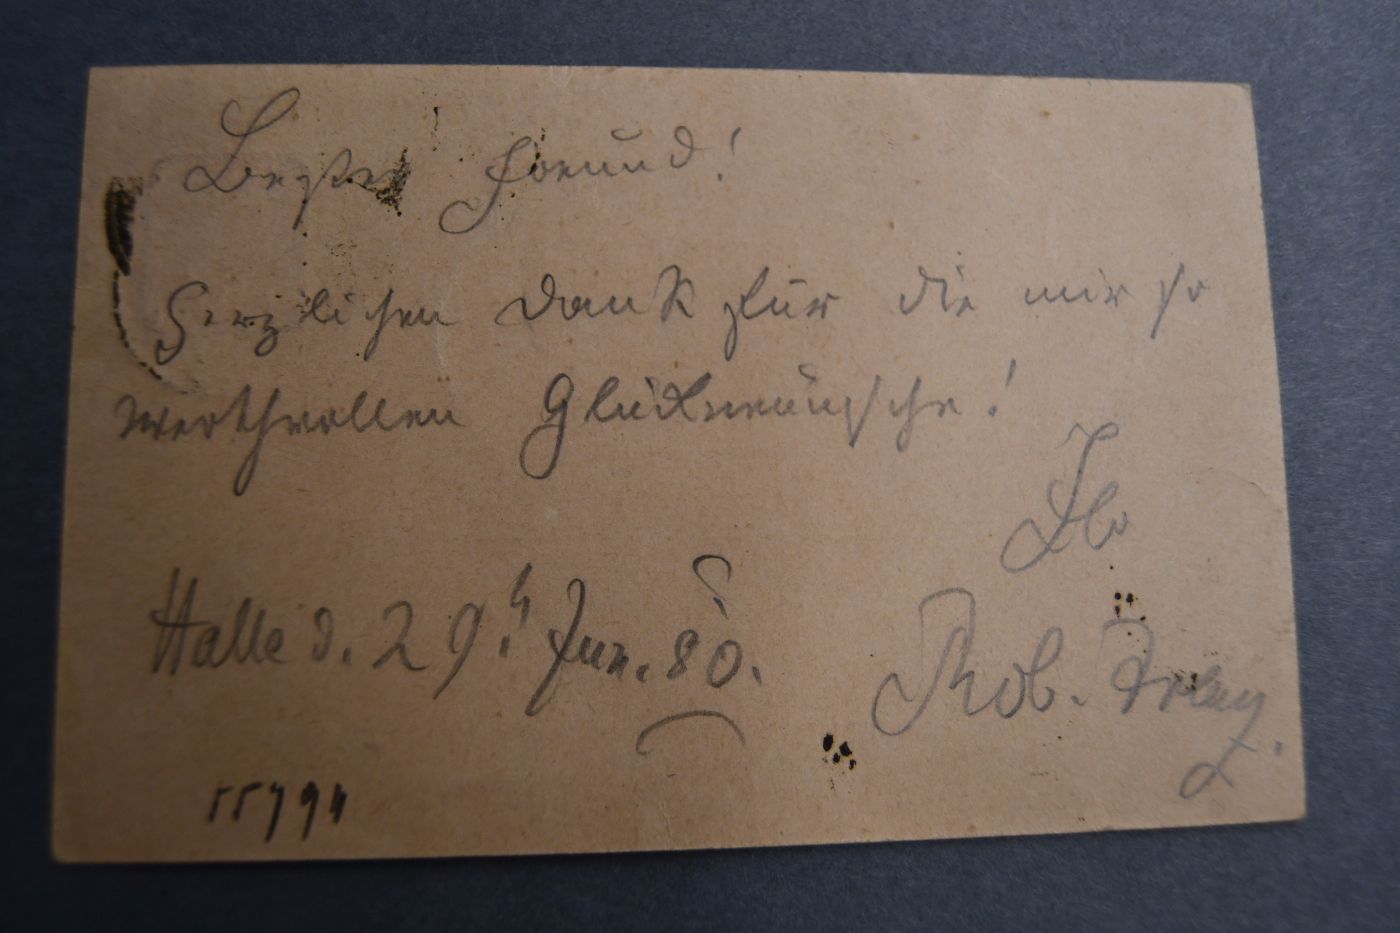 Bester Freund!
Herzlichen Dank für die mir so
werthvollen Glückwünsche!
Ihr
Halle d. 29t Jun. 80.
Rob. Franz.
55794